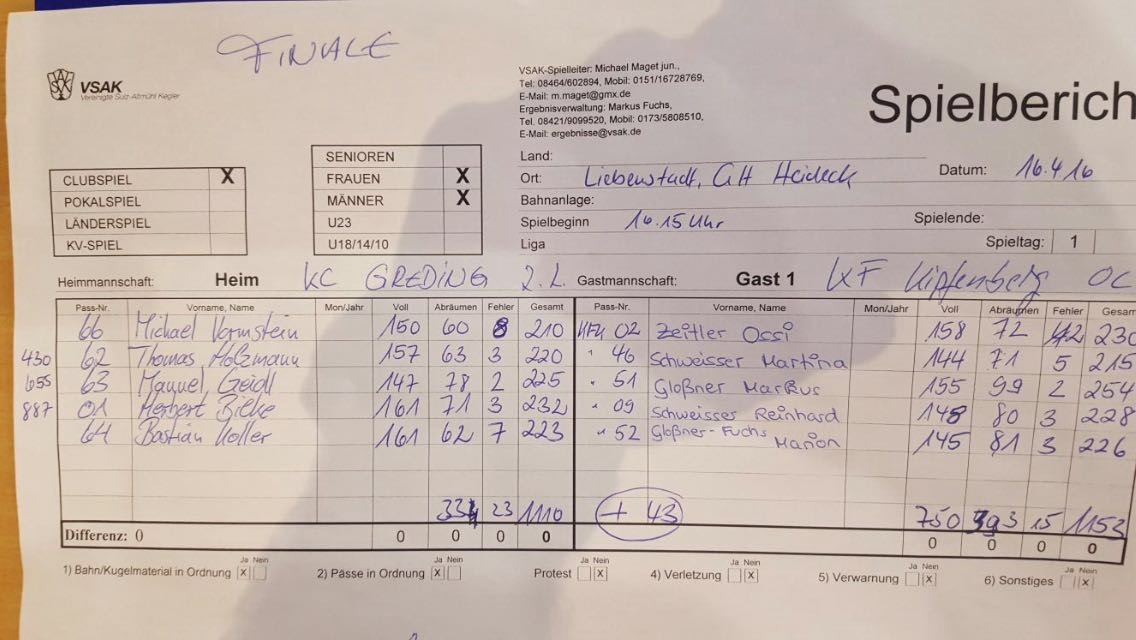 FINALE
VSAK
Vereinigte Sulz-Altmühl Kegler
VSAK-Spielleiter: Michael Maget jun.,
Tel: 08464/602894, Mobil: 0151/16728769,
E-Mail: m.maget@gmx.de
Ergebnisverwaltung: Markus Fuchs,
Tel. 08421/9099520, Mobil: 0173/5808510,
E-Mail: ergebnisse@vsak.de
Spielberich
CLUBSPIEL X
POKALSPIEL
LÄNDERSPIEL
KV-SPIEL
SENIOREN
FRAUEN X
MÄNNER X
U23
U18/14/10
Land:
Ort: Liebenstadt, Heideck Datum: 16.4.16
Bahnanlage:
Spielbeginn 16.15 Uhr Spielende:
Liga Spieltag: 1
Heimmannschaft: Heim KC GREDING 2. Gastmannschaft: Gast 1 KF Kipfenberg OC
Pass-Nr. Vorname, Name Mon/Jahr Voll Abräumen Fehler Gesamt Pass-Nr. Vorname, Name Mon/Jahr Voll Abräumen Fehler Gesam
66 Michael 150 60 8 210 02 Zeitler Ossi 158 72 230
430 62 Thomas Holzmann 157 63 3 220 " 46 Schweisser Martina 144 71 5 215
655 63 Manuel, Geidl 147 78 2 225 " 51 Gloßner Markus 155 99 2 254
887 01 Herbert 161 71 3 232 " 09 Schweisser Reinhard 148 80 3 228
64 Bastian Koller 161 62 7 223 " 52 Gloßner-Fuchs Marion 145 81 3 226
334 23 1110 + 43 750 393 15 1153
Differenz: 0 0 0 0 0 0 0 0 0
1) Bahn/Kugelmaterial in Ordnung Ja Nein X
2) Pässe in Ordnung Ja Nein X
Protest Ja Nein X
4) Verletzung Ja Nein X
5) Verwarnung Ja Nein X
6) Sonstiges Ja Nein X